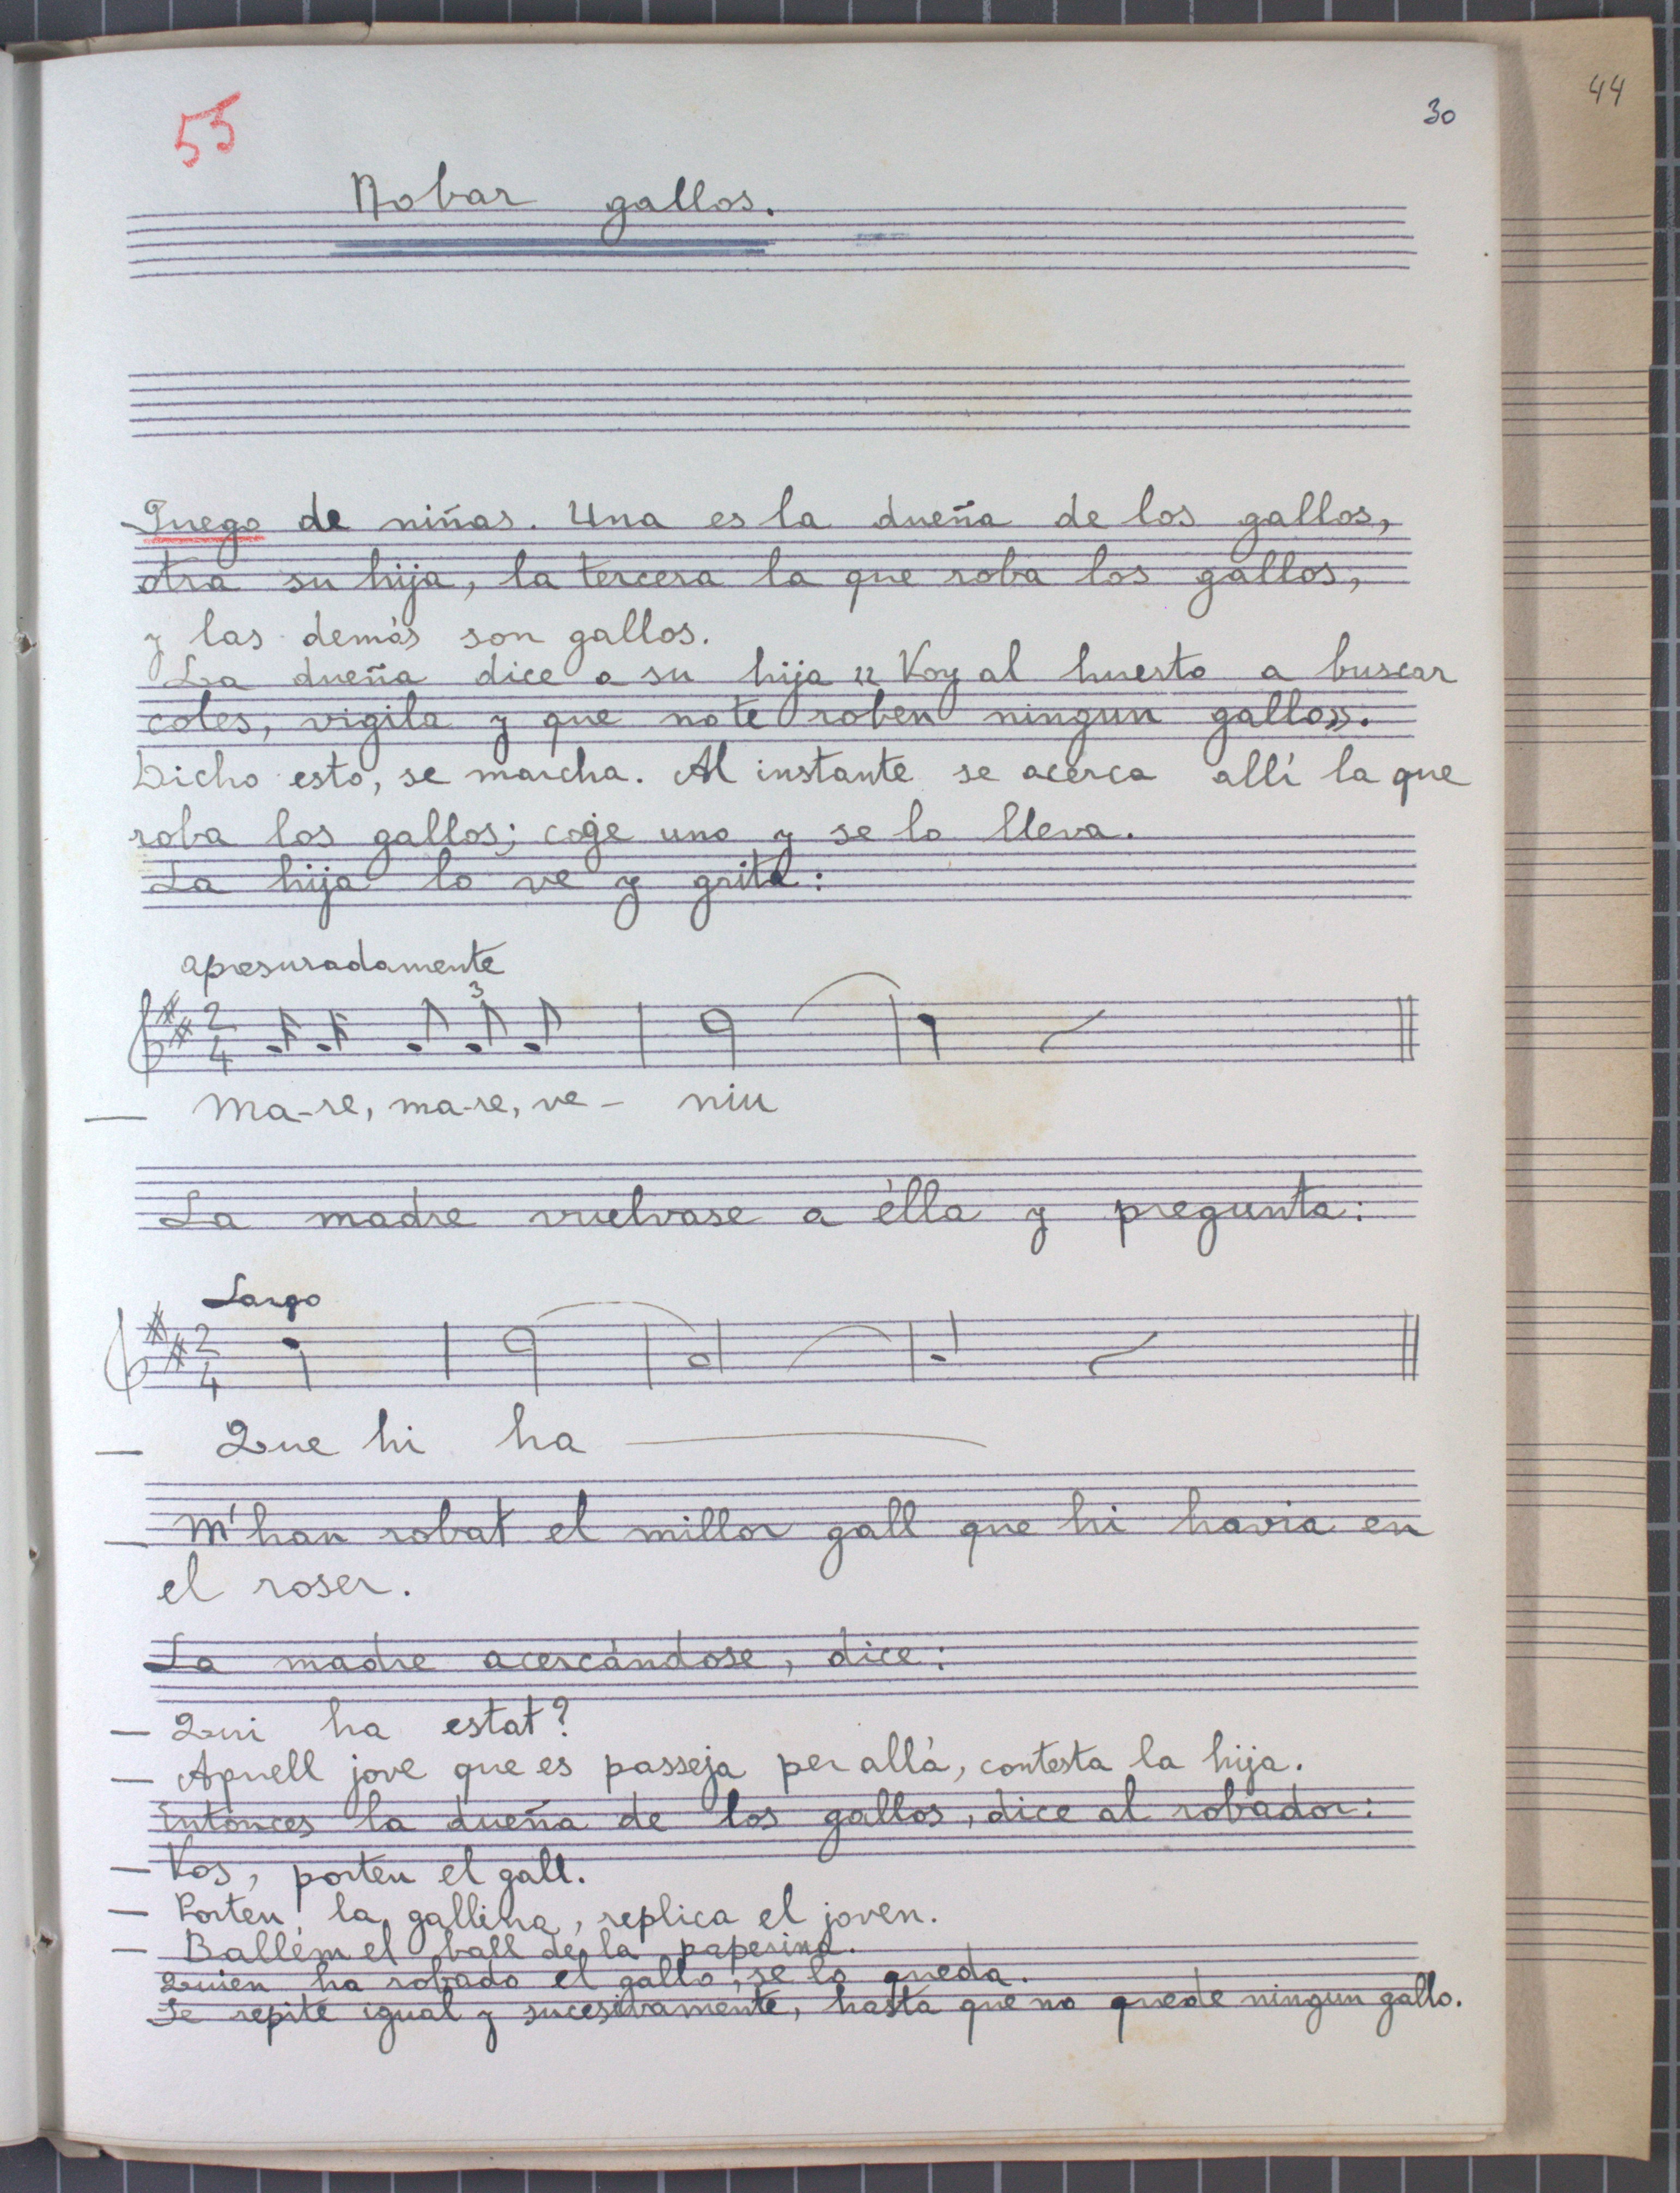 44
30
55
Robar gallos.
Juego de niñas. Una es la dueña de los gallos,
otra su hija, la tercera la que roba los gallos,
y las demás son gallos.
La dueña dice a su hija « Voy al huerto a buscar
coles, vigila y que no te roben ningun gallo».
Dicho esto, se marcha. Al instante se acerca allí la que
roba los gallos; coge uno y se lo lleva.
La hija lo ve y grita:
apresuradamente
3
2
4
— Ma-re, ma-re, ve- niu
La madre vuelvase a élla y pregunta:
Largo
2
4
— Que hi ha
— M'han robat el millor gall que hi havia en
el roser.
La madre acercándose, dice:
— Qui ha estat?
— Aquell jove que es passeja per allà, contesta la hija.
Entonces la dueña de los gallos, dice al robador:
— Vos, porteu el gall.
— Porteu la gallina, replica el joven.
— Ballém el ball de la paperina.
Quien ha robado el gallo, se lo queda.
Se repite igual y sucesivamente, hasta que no quede ningun gallo.